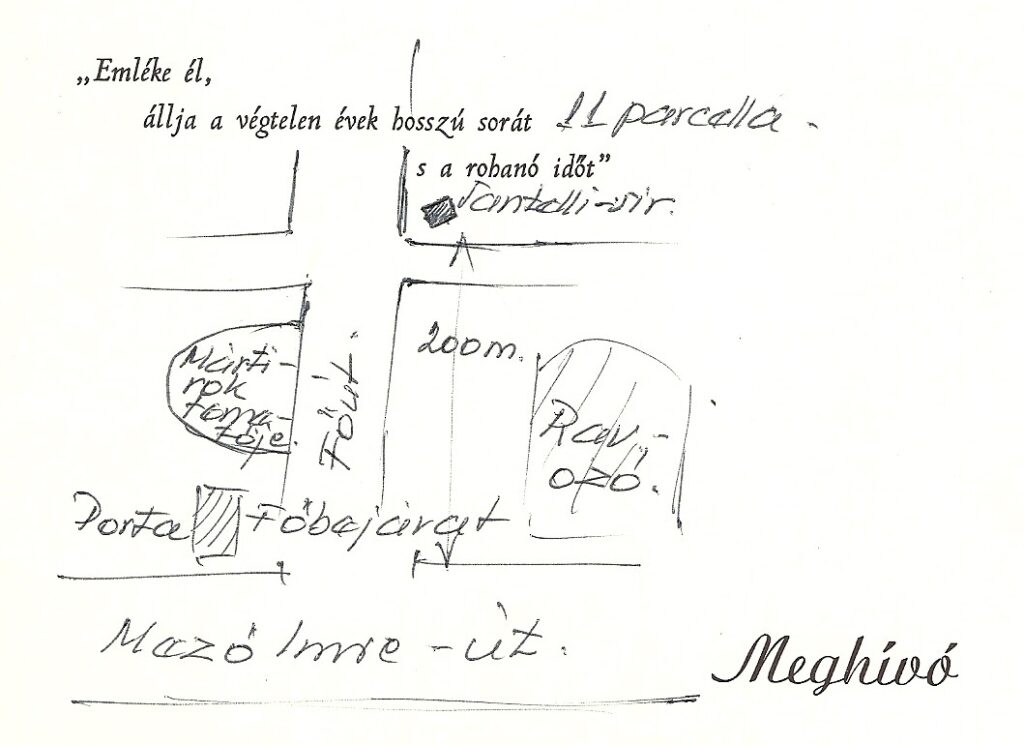 „Emléke él,
állja a végtelen évek hosszú sorát 11 parcella.
s a rohanó időt”
Tantalli-sir.
200m.
Márti-
rok
Főút.
Rav-
ozó.
Porta Főbejárat
Mező Imre-út.
Meghívó